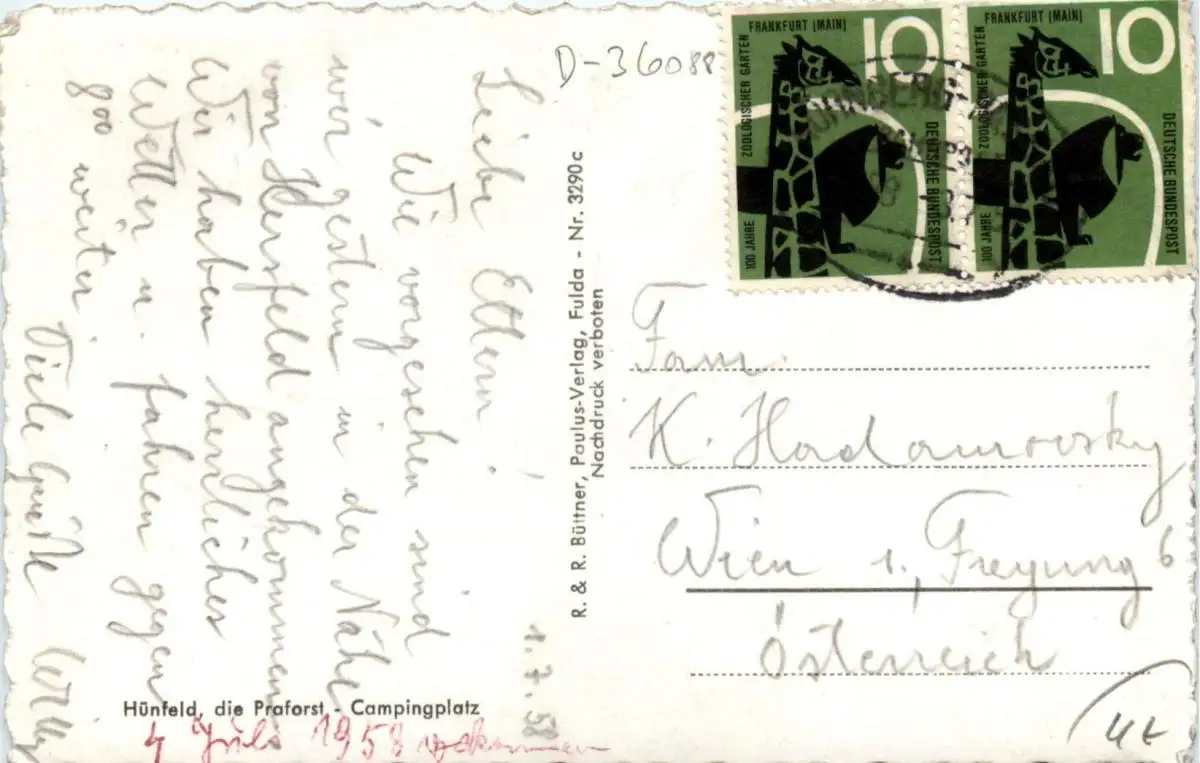 D-36088
1.7.58
Liebe Eltern!
Wie vorgesehen sind
wir gestern in der Nähe
von Hersfeld angekommen.
Wir haben herrliches
Wetter u. fahren gegen
8⁰⁰ weiter.
Viele Grüße
Willy
Hünfeld, die Praforst - Campingplatz
4 Juli 1958
R. & R. Büttner, Paulus-Verlag, Fulda - Nr. 3290c
Nachdruck verboten
FRANKFURT (MAIN)
10
ZOOLOGISCHER GARTEN
100 JAHRE
DEUTSCHE BUNDESPOST
FRANKFURT (MAIN)
10
ZOOLOGISCHER GARTEN
100 JAHRE
DEUTSCHE BUNDESPOST
Fam.
K. Hadamovsky
Wien 1., Freyung 6
Österreich